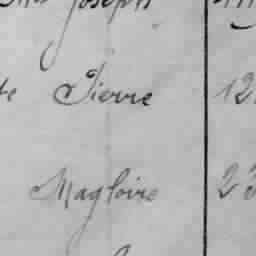 Joseph
Pierre 12
Magloire 23